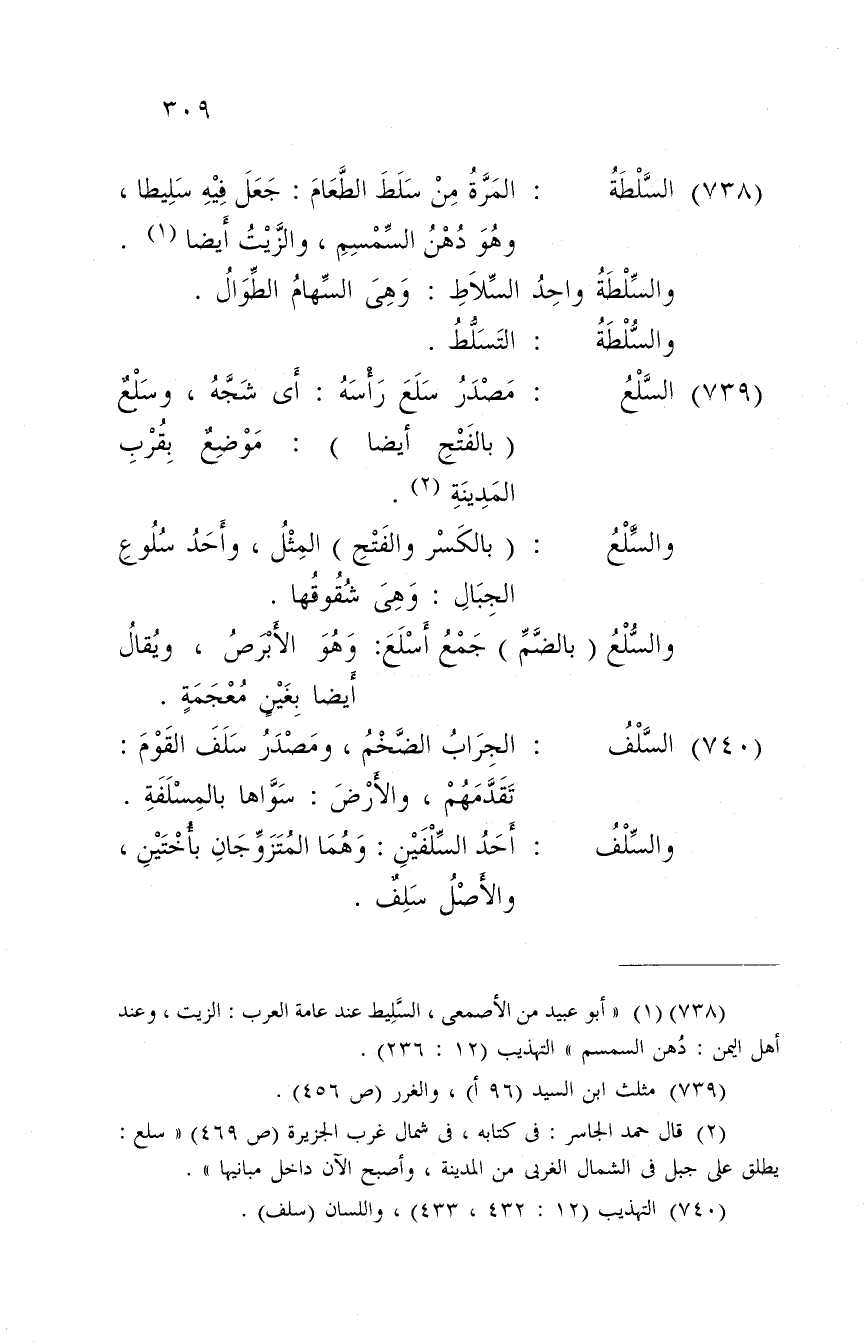 ٣٠٩
(٧٣٨) السَّلْطَةُ : المَرَّةُ مِنْ سَلَطَ الطَّعَامَ : جَعَلَ فِيْهِ سَلِيطا ،
وهُوَ دُهْنُ السِّمْسِمِ ، والزَّيْتُ أَيضا (١) .
والسِّلْطَةُ واحِدُ السِّلاَطِ : وَهِىَ السِّهامُ الطِّوَالُ .
والسُّلْطَةُ : التَسَلُّطُ .
(٧٣٩) السَّلْعُ : مَصْدَرُ سَلَعَ رَأْسَهُ : أَى شَجَّهُ ، وسَلْعٌ
( بالفَتْحِ أيضا ) : مَوْضِعٌ بِقُرْبِ
المَدِينَةِ (٢) .
والسِّلْعُ : ( بالكَسْرِ والفَتْحِ ) المِثْلُ ، وأَحَدُ سُلُوعِ
الجِبَالِ : وَهِىَ شُقُوقُها .
والسُّلْعُ ( بالضَّمِّ ) جَمْعُ أَسْلَعَ: وَهُوَ الأَبْرَصُ ، ويُقالُ
أَيضا بِغَيْنٍ مُعْجَمَةٍ .
(٧٤٠) السَّلْفُ : الجِرَابُ الضَّخْمُ ، ومَصْدَرُ سَلَفَ القَوْمَ :
تَقَدَّمَهُمْ ، والأَرْضَ : سَوَّاها بالمِسْلَفَةِ .
والسِّلْفُ : أَحَدُ السِّلْفَيْنِ : وَهُمَا المُتَزَوِّجَانِ بأُخْتَيْنِ ،
والأَصْلُ سَلِفٌ .
(٧٣٨) (١) « أبو عبيد من الأصمعى ، السَّلِيط عند عامة العرب : الزيت ، وعند
أهل اليمن : دُهن السمسم » التهذيب (١٢ : ٢٣٦) .
(٧٣٩) مثلث ابن السيد (٩٦ أ) ، والغرر (ص ٤٥٦) .
(٢) قال حمد الجاسر : فى كتابه ، فى شمال غرب الجزيرة (ص ٤٦٩) « سلع :
يطلق على جبل فى الشمال الغربى من المدينة ، وأصبح الآن داخل مبانيها » .
(٧٤٠) التهذيب (١٢ : ٤٣٢ ، ٤٣٣) ، واللسان (سلف) .